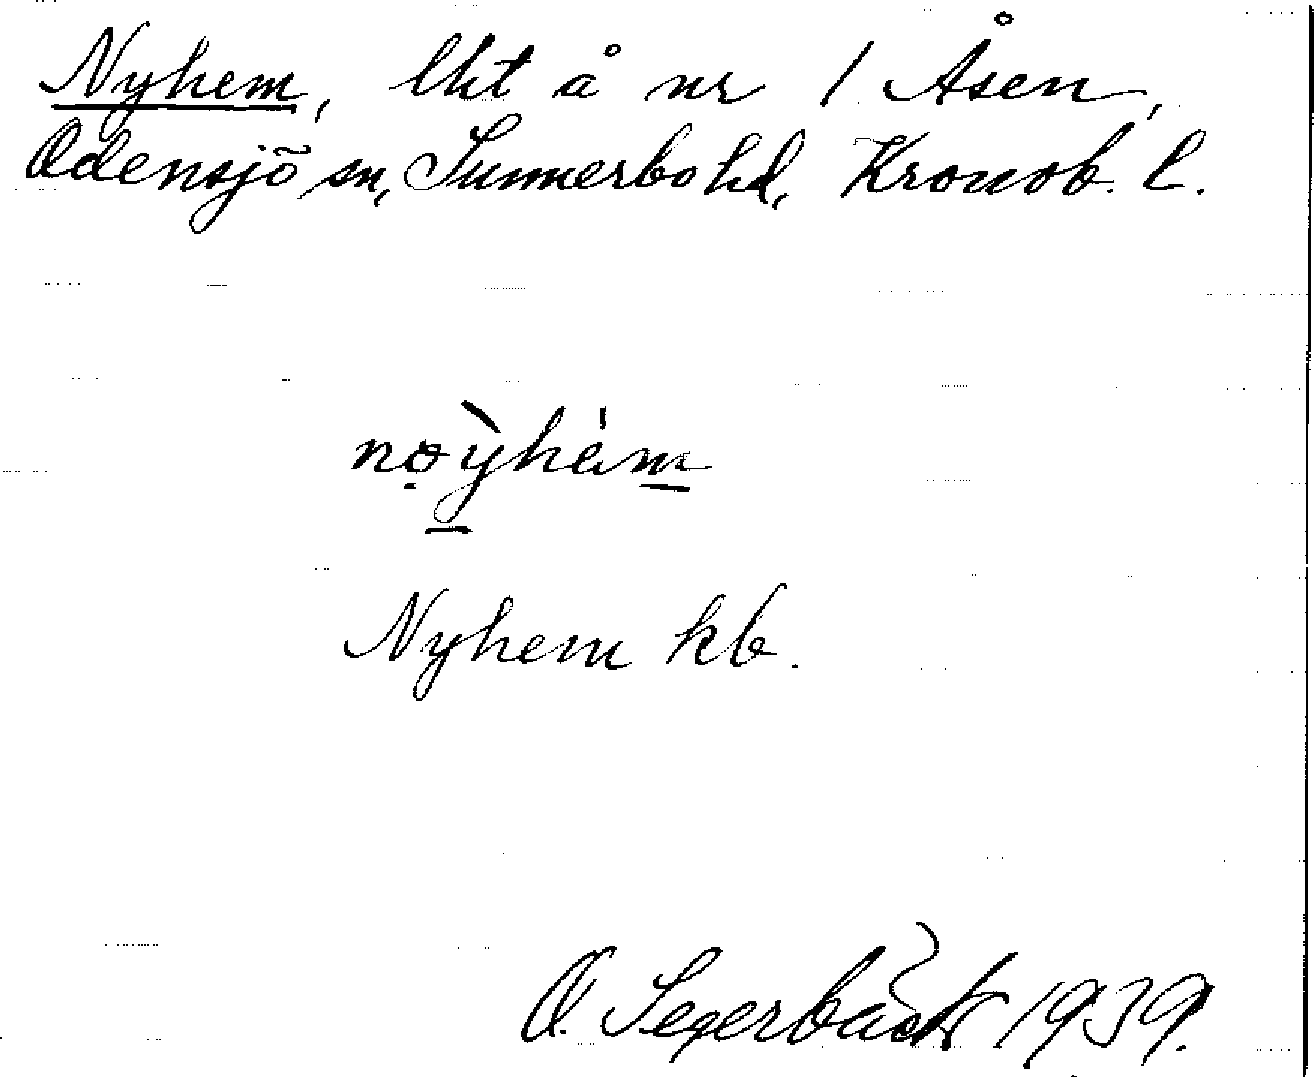 Nyhem, lht å nr 1 Åsen,
Odensjö sn, Sunnerbo hd, Kronob. l.
nọỳhém
Nyhem kb.
O. Segerbäck 1939.